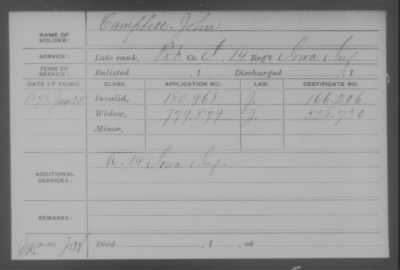 NAME OF SOLDIER: Campbell John
SERVICE: Late rank, Pvt Co. A, 14 Reg't Iowa Inf.
TERM OF SERVICE: Enlisted , 1 Discharged , 1
DATE OF FILING. CLASS. APPLICATION NO. LAW. CERTIFICATE NO.
Jan Invalid, 180,968 166,206
Widow, 779,899
Minor,
ADDITIONAL SERVICES: A. 14 Iowa Inf
REMARKS:
Died , 1 , at